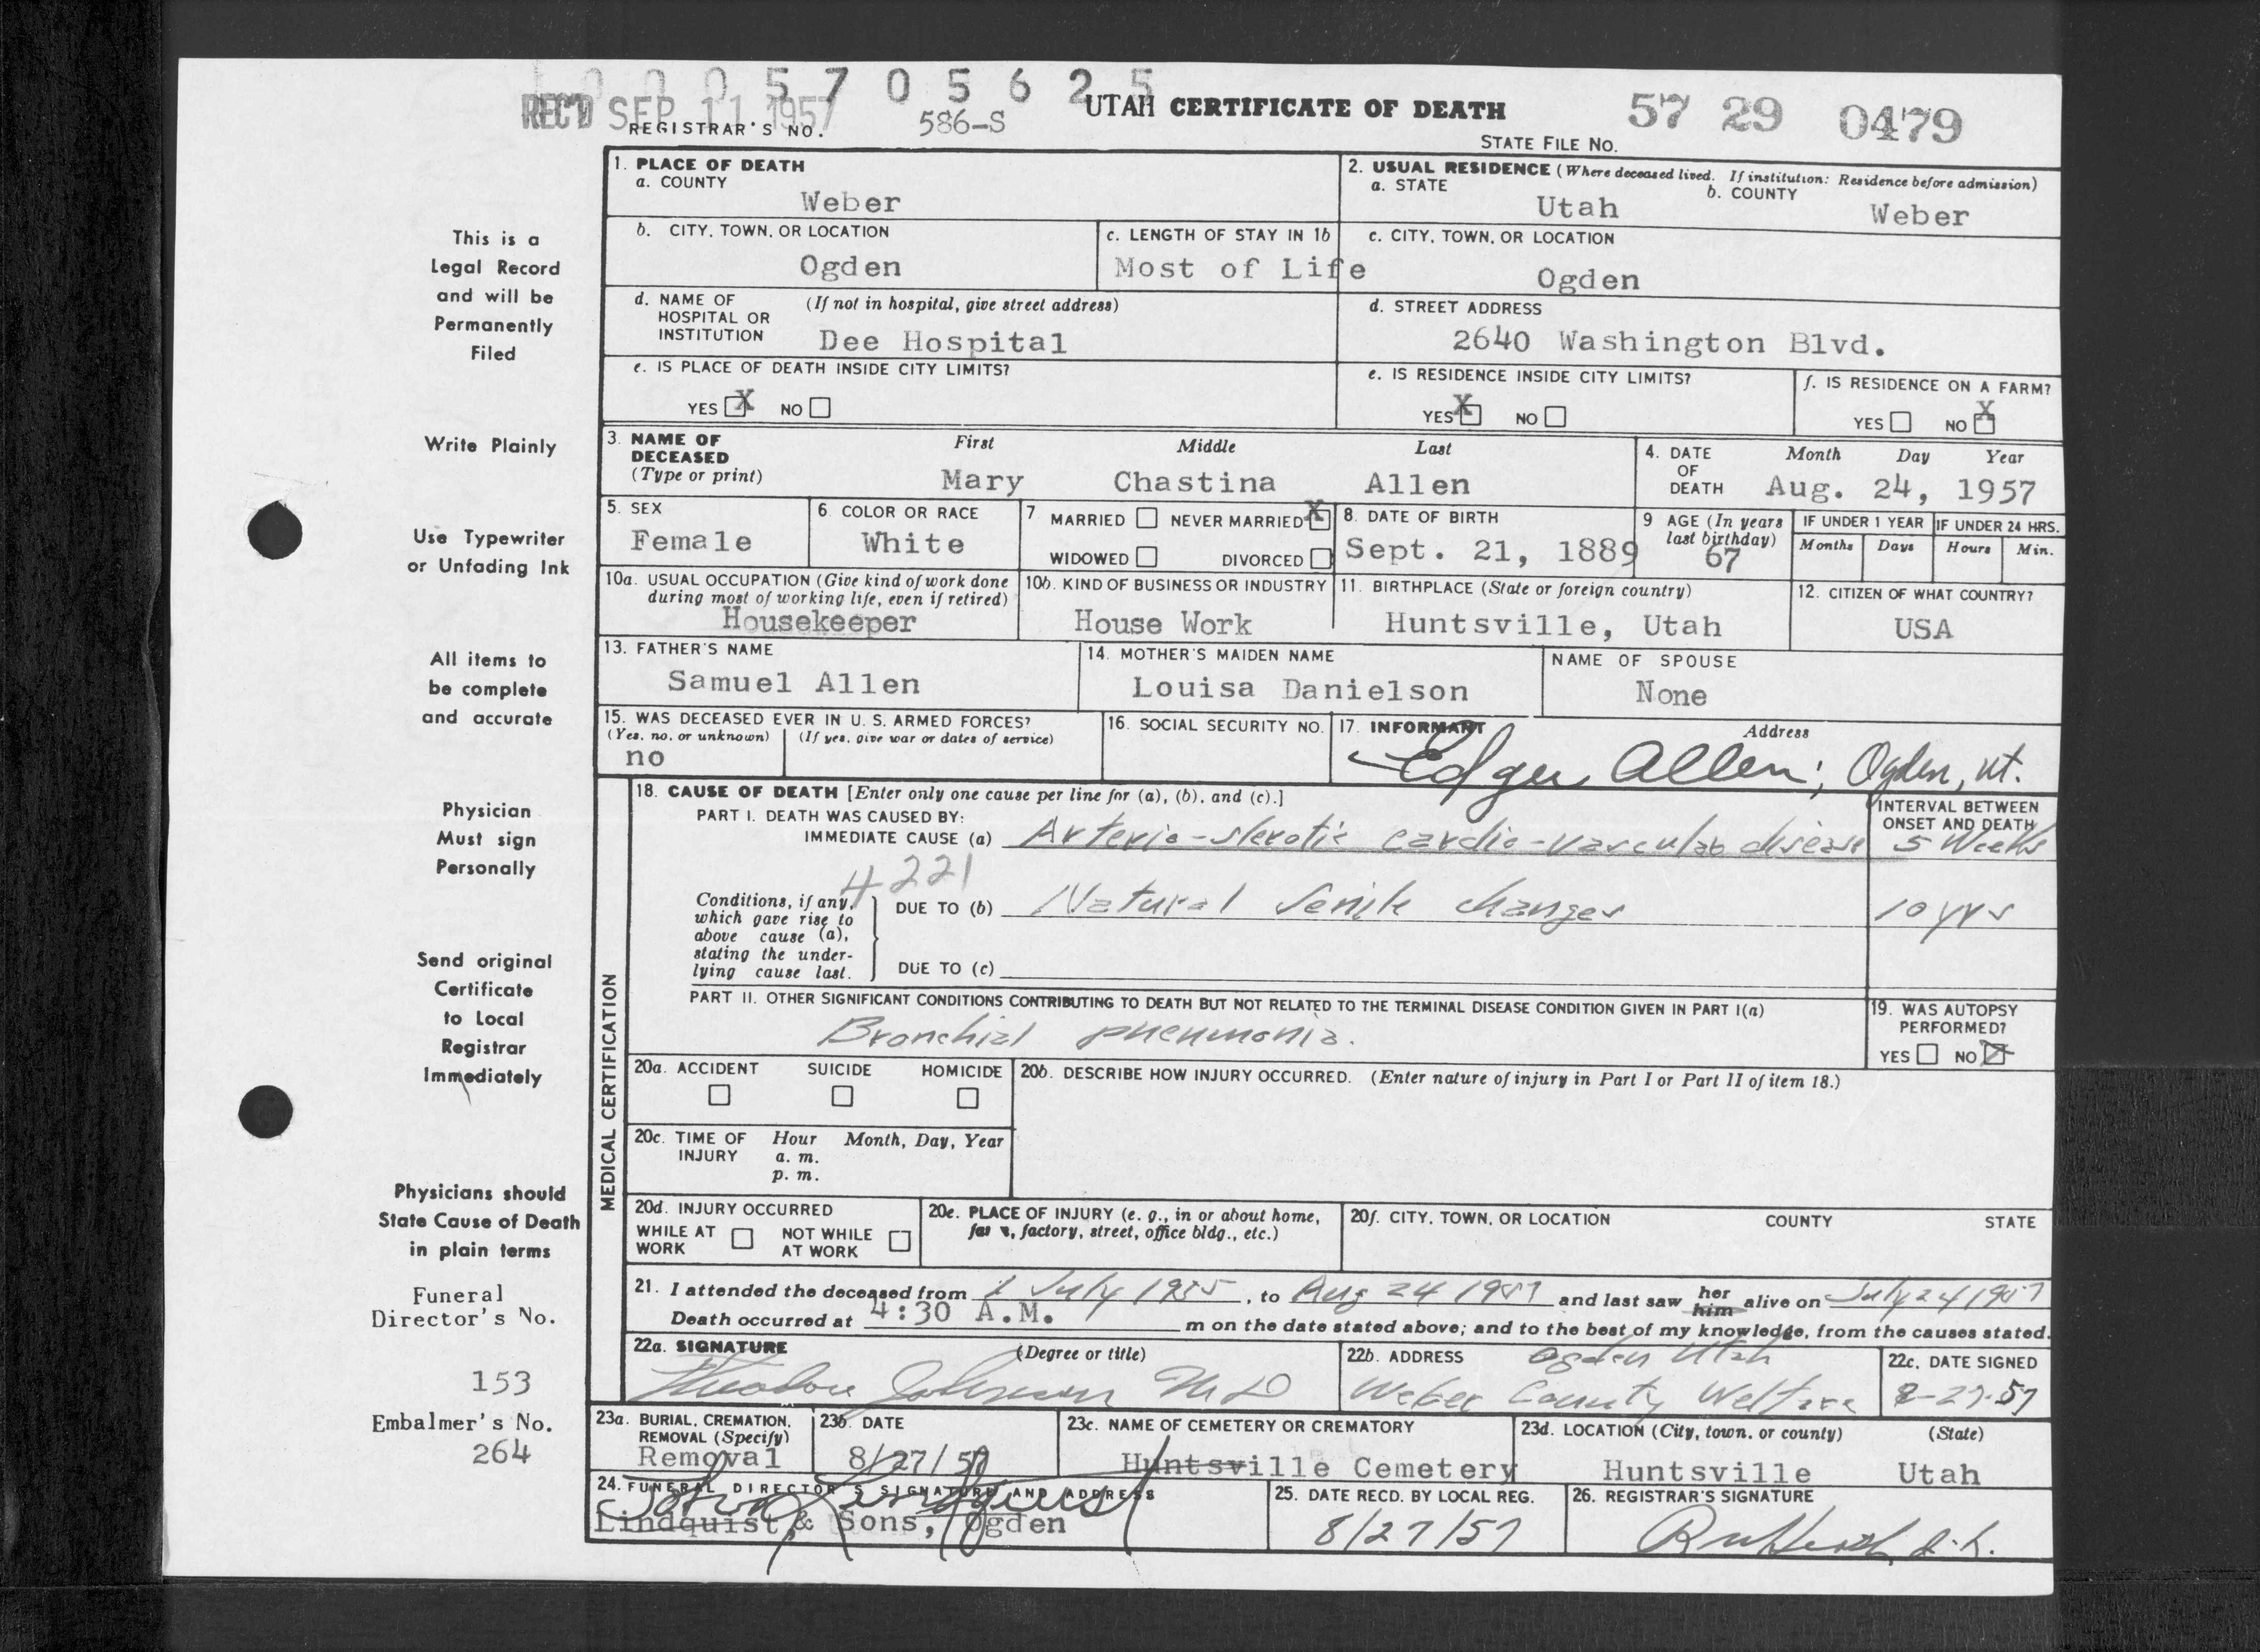 0 0 0 5 7 0 5 6 2 5
REC'D SEP 11 1957
REGISTRAR'S NO. 586-S
UTAH CERTIFICATE OF DEATH
57 29 0479
STATE FILE NO.
This is a
Legal Record
and will be
Permanently
Filed
Write Plainly
Use Typewriter
or Unfading Ink
All items to
be complete
and accurate
Physician
Must sign
Personally
Send original
Certificate
to Local
Registrar
Immediately
Physicians should
State Cause of Death
in plain terms
Funeral
Director's No.
153
Embalmer's No.
264
1. PLACE OF DEATH
a. COUNTY
Weber
2. USUAL RESIDENCE (Where deceased lived. If institution: Residence before admission)
a. STATE
Utah
b. COUNTY
Weber
b. CITY, TOWN, OR LOCATION
Ogden
c. LENGTH OF STAY IN 1b
Most of Life
c. CITY, TOWN, OR LOCATION
Ogden
d. NAME OF HOSPITAL OR INSTITUTION
(If not in hospital, give street address)
Dee Hospital
d. STREET ADDRESS
2640 Washington Blvd.
e. IS PLACE OF DEATH INSIDE CITY LIMITS?
YES X NO
e. IS RESIDENCE INSIDE CITY LIMITS?
YES X NO
f. IS RESIDENCE ON A FARM?
YES NO X
3. NAME OF DECEASED
(Type or print)
First Middle Last
Mary Chastina Allen
4. DATE OF DEATH
Month Day Year
Aug. 24, 1957
5. SEX
Female
6. COLOR OR RACE
White
7 MARRIED NEVER MARRIED X
WIDOWED DIVORCED
8. DATE OF BIRTH
Sept. 21, 1889
9 AGE (In years last birthday)
67
IF UNDER 1 YEAR
Months Days
IF UNDER 24 HRS.
Hours Min.
10a. USUAL OCCUPATION (Give kind of work done
during most of working life, even if retired)
Housekeeper
10b. KIND OF BUSINESS OR INDUSTRY
House Work
11. BIRTHPLACE (State or foreign country)
Huntsville, Utah
12. CITIZEN OF WHAT COUNTRY?
USA
13. FATHER'S NAME
Samuel Allen
14. MOTHER'S MAIDEN NAME
Louisa Danielson
NAME OF SPOUSE
None
15. WAS DECEASED EVER IN U. S. ARMED FORCES?
(Yes, no, or unknown) (If yes, give war or dates of service)
no
16. SOCIAL SECURITY NO.
17. INFORMANT Address
Edgar Allen; Ogden, Ut.
MEDICAL CERTIFICATION
18. CAUSE OF DEATH [Enter only one cause per line for (a), (b), and (c).]
PART I. DEATH WAS CAUSED BY:
IMMEDIATE CAUSE (a) Arterio-slerotic cardio-vascular disease
INTERVAL BETWEEN ONSET AND DEATH
5 Weeks
4221
Conditions, if any,
which gave rise to
above cause (a),
stating the under-
lying cause last.
DUE TO (b) Natural Senile changes
10 yrs
DUE TO (c)
PART II. OTHER SIGNIFICANT CONDITIONS CONTRIBUTING TO DEATH BUT NOT RELATED TO THE TERMINAL DISEASE CONDITION GIVEN IN PART I(a)
Bronchial pneumonia.
19. WAS AUTOPSY PERFORMED?
YES NO X
20a. ACCIDENT SUICIDE HOMICIDE
20b. DESCRIBE HOW INJURY OCCURRED. (Enter nature of injury in Part I or Part II of item 18.)
20c. TIME OF INJURY
Hour Month, Day, Year
a. m.
p. m.
20d. INJURY OCCURRED
WHILE AT WORK NOT WHILE AT WORK
20e. PLACE OF INJURY (e. g., in or about home,
farm, factory, street, office bldg., etc.)
20f. CITY, TOWN, OR LOCATION COUNTY STATE
21. I attended the deceased from 1 July 1955, to Aug 24 1957 and last saw her him alive on July 24 1957
Death occurred at 4:30 A.M. m on the date stated above; and to the best of my knowledge, from the causes stated.
22a. SIGNATURE (Degree or title)
Theodore Johnson MD
22b. ADDRESS
Ogden Utah
Weber County Welfare
22c. DATE SIGNED
8-27-57
23a. BURIAL, CREMATION, REMOVAL (Specify)
Removal
23b. DATE
8/27/57
23c. NAME OF CEMETERY OR CREMATORY
Huntsville Cemetery
23d. LOCATION (City, town, or county) (State)
Huntsville Utah
24. FUNERAL DIRECTOR'S SIGNATURE AND ADDRESS
John Lindquist
Lindquist & Sons, Ogden
25. DATE RECD. BY LOCAL REG.
8/27/57
26. REGISTRAR'S SIGNATURE